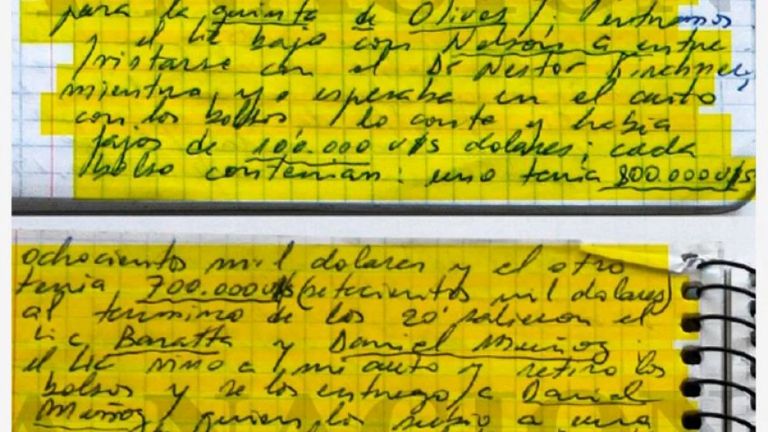 para la quinta de Olivos /. entramos
y el Lic bajo con Nelson a entre
/vistarse con el Dr Nestor Kirchner,
mientras yo esperaba en el auto
con los bolsos / lo conte y habia
fajos de 100.000 U/S dolares; cada
bolso contenian: uno tenia 800.000 U/S
ochocientos mil dolares y el otro
tenia 700.000 U/S (setecientos mil dolares)
al termino de los 20' salieron el
Lic Baratta y Daniel Muñoz.
el Lic vino a mi auto y retiro los
bolsos y se los entrego / a Daniel
Muñoz / quien los subio a una